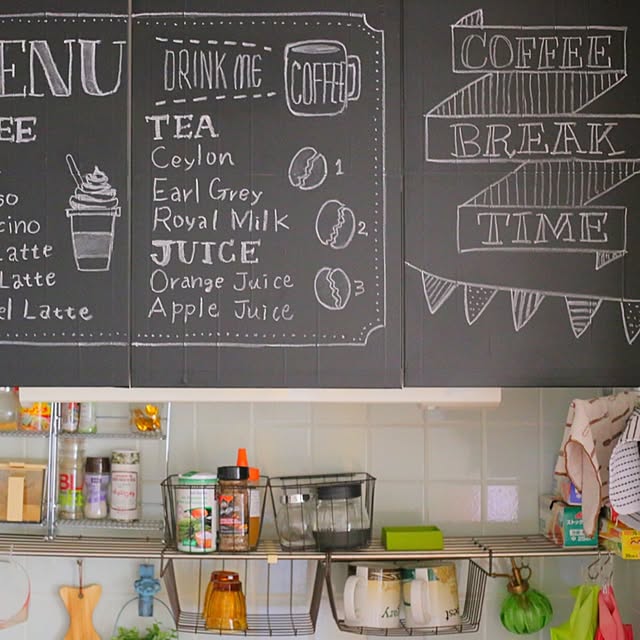 ENU
EE
so
cino
Latte
Latte
el Latte
DRINK ME
COFFEE
TEA
Ceylon
Earl Grey
Royal Milk
JUICE
Orange Juice
Apple Juice
1
2
3
COFFEE
BREAK
TIME